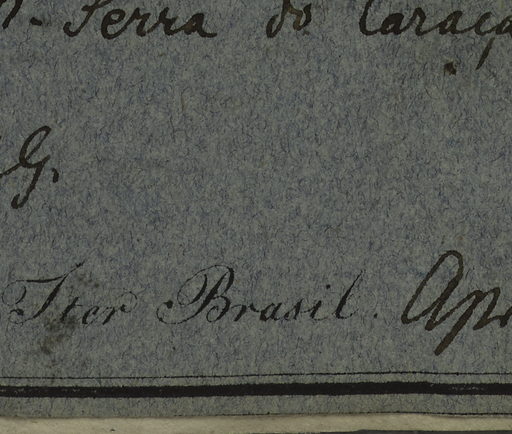 Serra do Caraça
G.
Iter Brasil. Apr